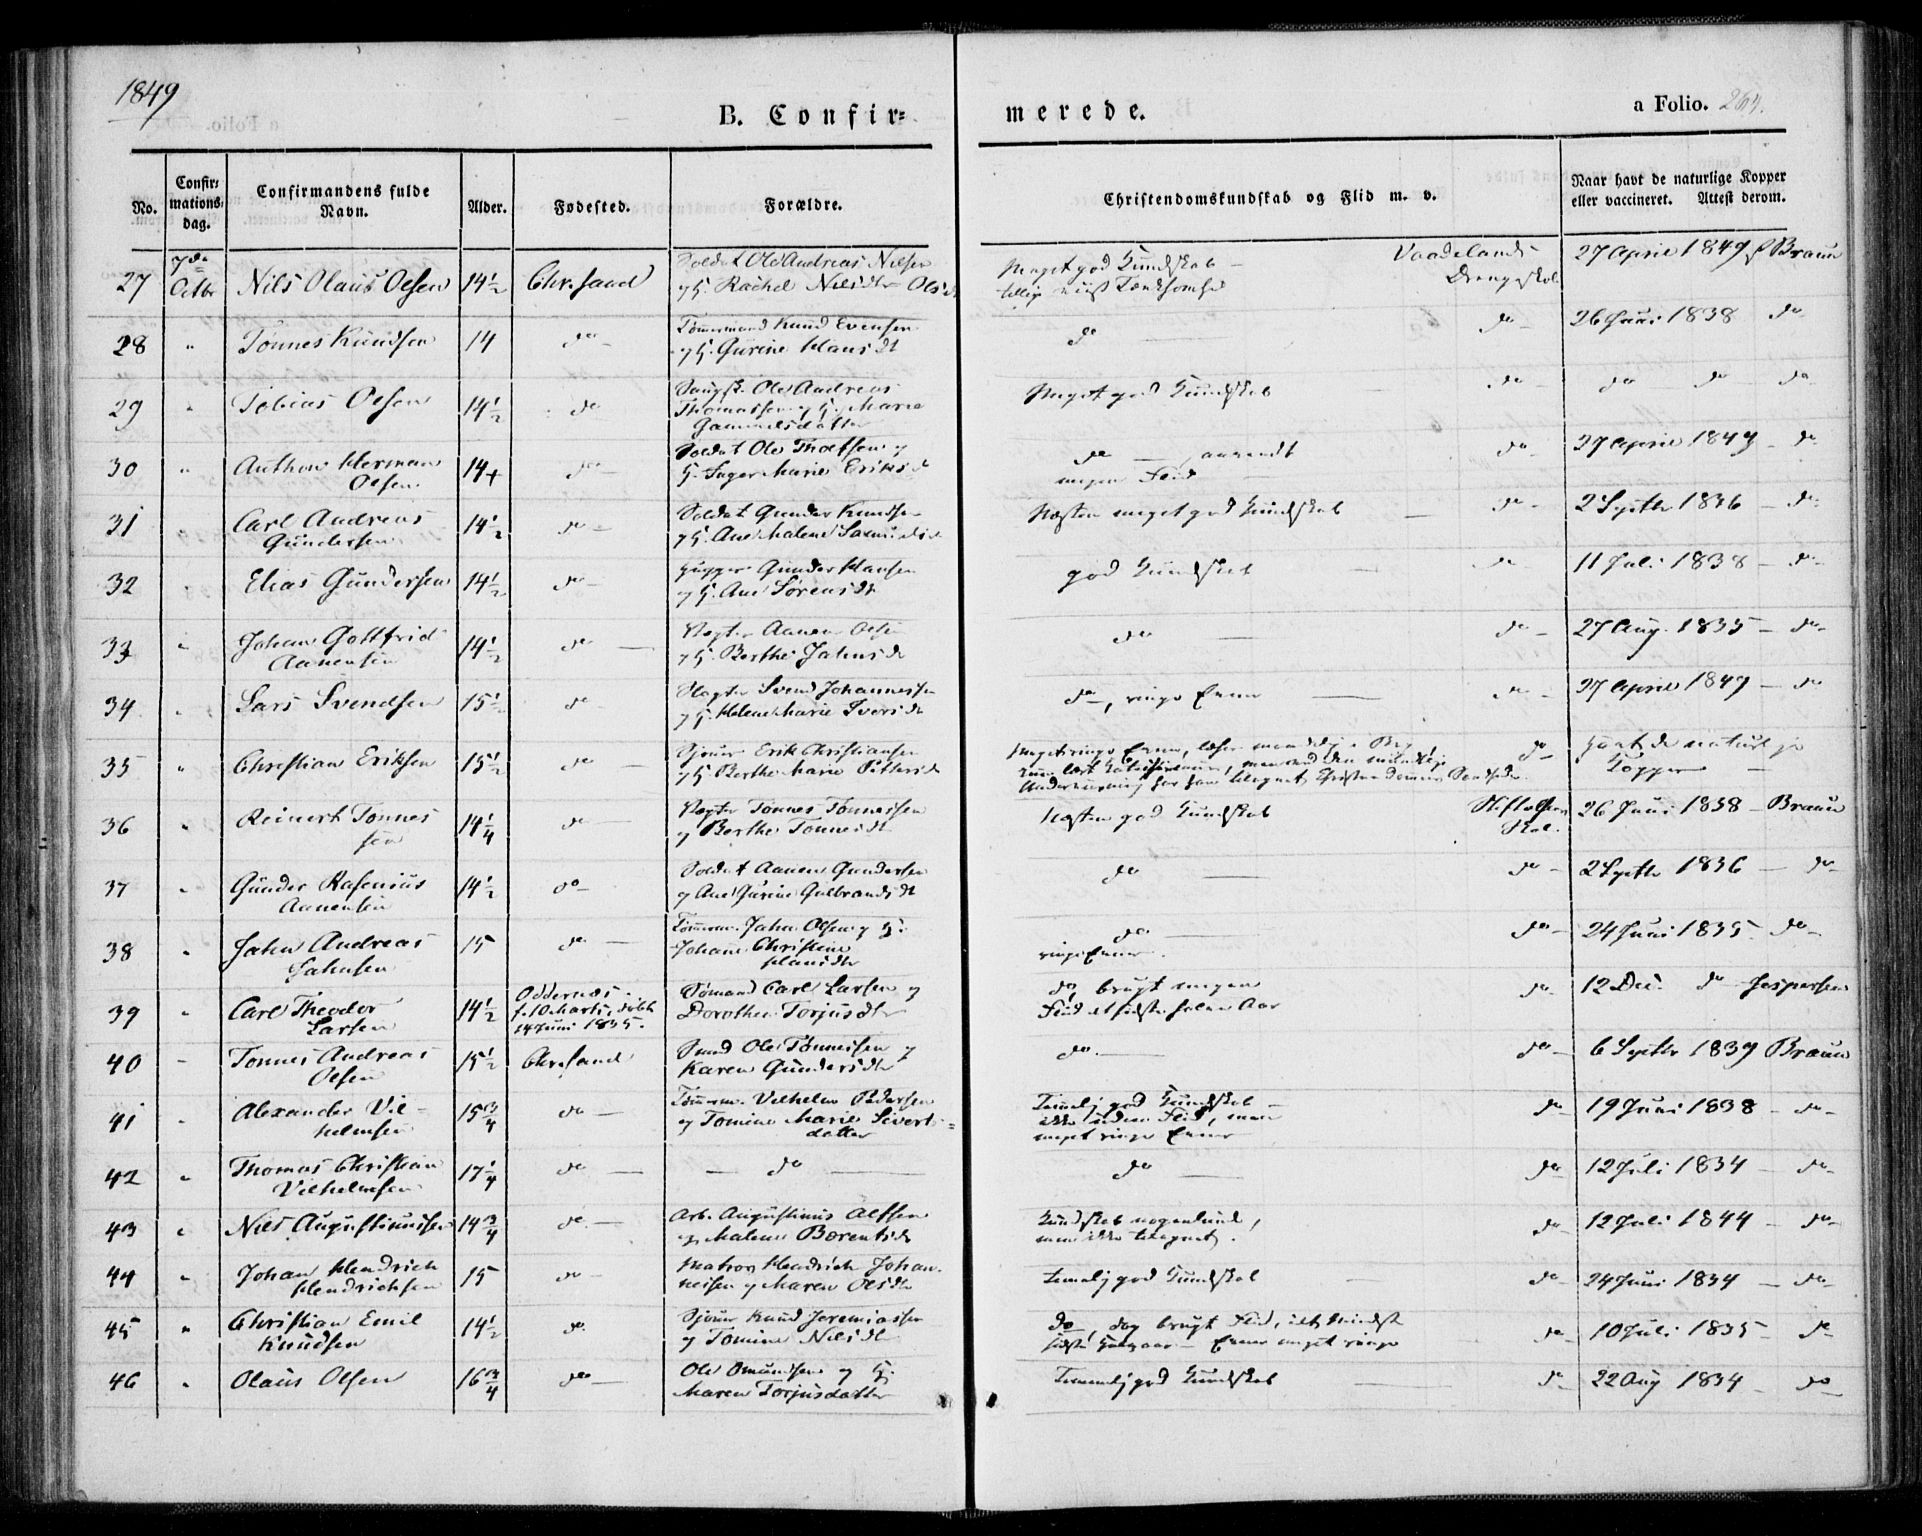 1849
B. Confir=
merede.
a Folio. 264.
No.
Confir=
mations=
dag.
Confirmandens fulde
Navn.
Alder.
Fødested.
Forældre.
Christendomskundskab og Flid m. v.
Naar havt de naturlige Kopper
eller vaccineret. Attest derom.
27 7de Octbr Nils Olaus Olsen 14½ Chr.sand Soldat Ole Andreas Nilsen
og H. Rachel Nilsdtr
Meget god Kundskab
Vaadelands
27 April 1849 Braun
28 " Tønnes Knudsen 14 do Tømmermand Knud Evensen
og H. Gurine Hansdt
do do 26 Juni 1838 do
29 " Tobias Olsen 14½ do Ole Andreas
Thomassen og H. Marie
Gammelsdatter
Meget god Kundskab do do do do
30 " Anthon Herman
Olsen 14 do Soldat Ole
H. Inger Marie Eriksd
do megen Flid do 27 April 1849 do
31 Carl Andreas
Gundersen 14½ do Soldat Gunder Knudsen
og H. Ane Malene
Næsten meget god Kundskab do 2 Septbr 1836 do
32 Elias Gundersen 14½ do Gunder Hansen
og H. Ane Sørensdt
god Kundskab do 11 Juli 1838 do
33 " Johan Gottfrid
Aanensen 14½ do Vægter Aanen Olsen
og H. Berthe Jahnsd
do do 27 Aug. 1835 do
34 " Lars Svendsen 15½ do Vægter Svend Johannessen
og H. Helene Marie Iversdt
do, ringe Evner do 27 April 1849 do
35 " Christian Eriksen 15½ do Sjouer Erik Christiansen
og H. Berthe Marie Pettersd
Meget ringe Evner, læser
do havt de naturlige
Kopper
36 " Reinert Tønnes
sen 14¼ do Vægter Tønnes Tønnessen
og Berthe Tønnesdt
Næsten god Kundskab
Skole 26 Juni 1838 Braun
37 " Gunder Rasenius
Aanensen 14½ do Soldat Aanen Gundersen
og Ane Gurine Gulbrandsdt
do do 2 Septbr 1836 do
38 " Jahn Andreas
Jahnsen 15 do Tømmerm. Jahn Olsen og H.
Johane Christine
Hansdtr
do
ringe Evner. do 24 Juni 1835 do
39 " Carl Theodor
Larsen 14½ Oddernæs
f. 10 Marts, døbt
14 Juni 1835. Sømand Carl Larsen og
Dorothea Torjusdtr
do, brugt megen
Flid det sidste halve Aar do 12 Dec. do Jespersen
40 " Tønnes Andreas
Olsen 15½ Chr.sand Smed Ole Tønnessen og
Karen Gundersdtr
do. do 6 Septbr 1839 Braun
41 " Alexander Vil=
helmsen 15¾ do Tømmerm. Vilhelm Pedersen
og Tomine Marie Sivert=
datter
Temmelig god Kundskab
ikke uden Flid, men
meget ringe Evner do 19 Juni 1838 do
42 " Thomas Christian
Vilhelmsen 17¼ do do do do 12 Juli 1834 do
43 " Nils Augustinussen 14¾ do Arb. Augustinus Alfsen
og Malene Børentsdt
Kundskab nogenlunde,
men ikke tilegnet. do 12 Juli 1844 do
44 " Johan Hendrich
Hendrichsen 15 do Matros Hendrich Johan
nesen og Maren Olsdtr
temmelig god Kundskab do 24 Juni 1834 do
45 " Christian Emil
Knudsen 14½ do. Sjouer Knud Jeremiassen
og Tomine Nilsdtr
do, dog brugt Flid, idetmindste
sidste Evner meget ringe do 10 Juli 1835 do
46 " Olaus Olsen 16¾ do Ole Omundsen og H.
Maren Torjusdatter
Temmelig god Kundskab do 22 Aug 1834 do